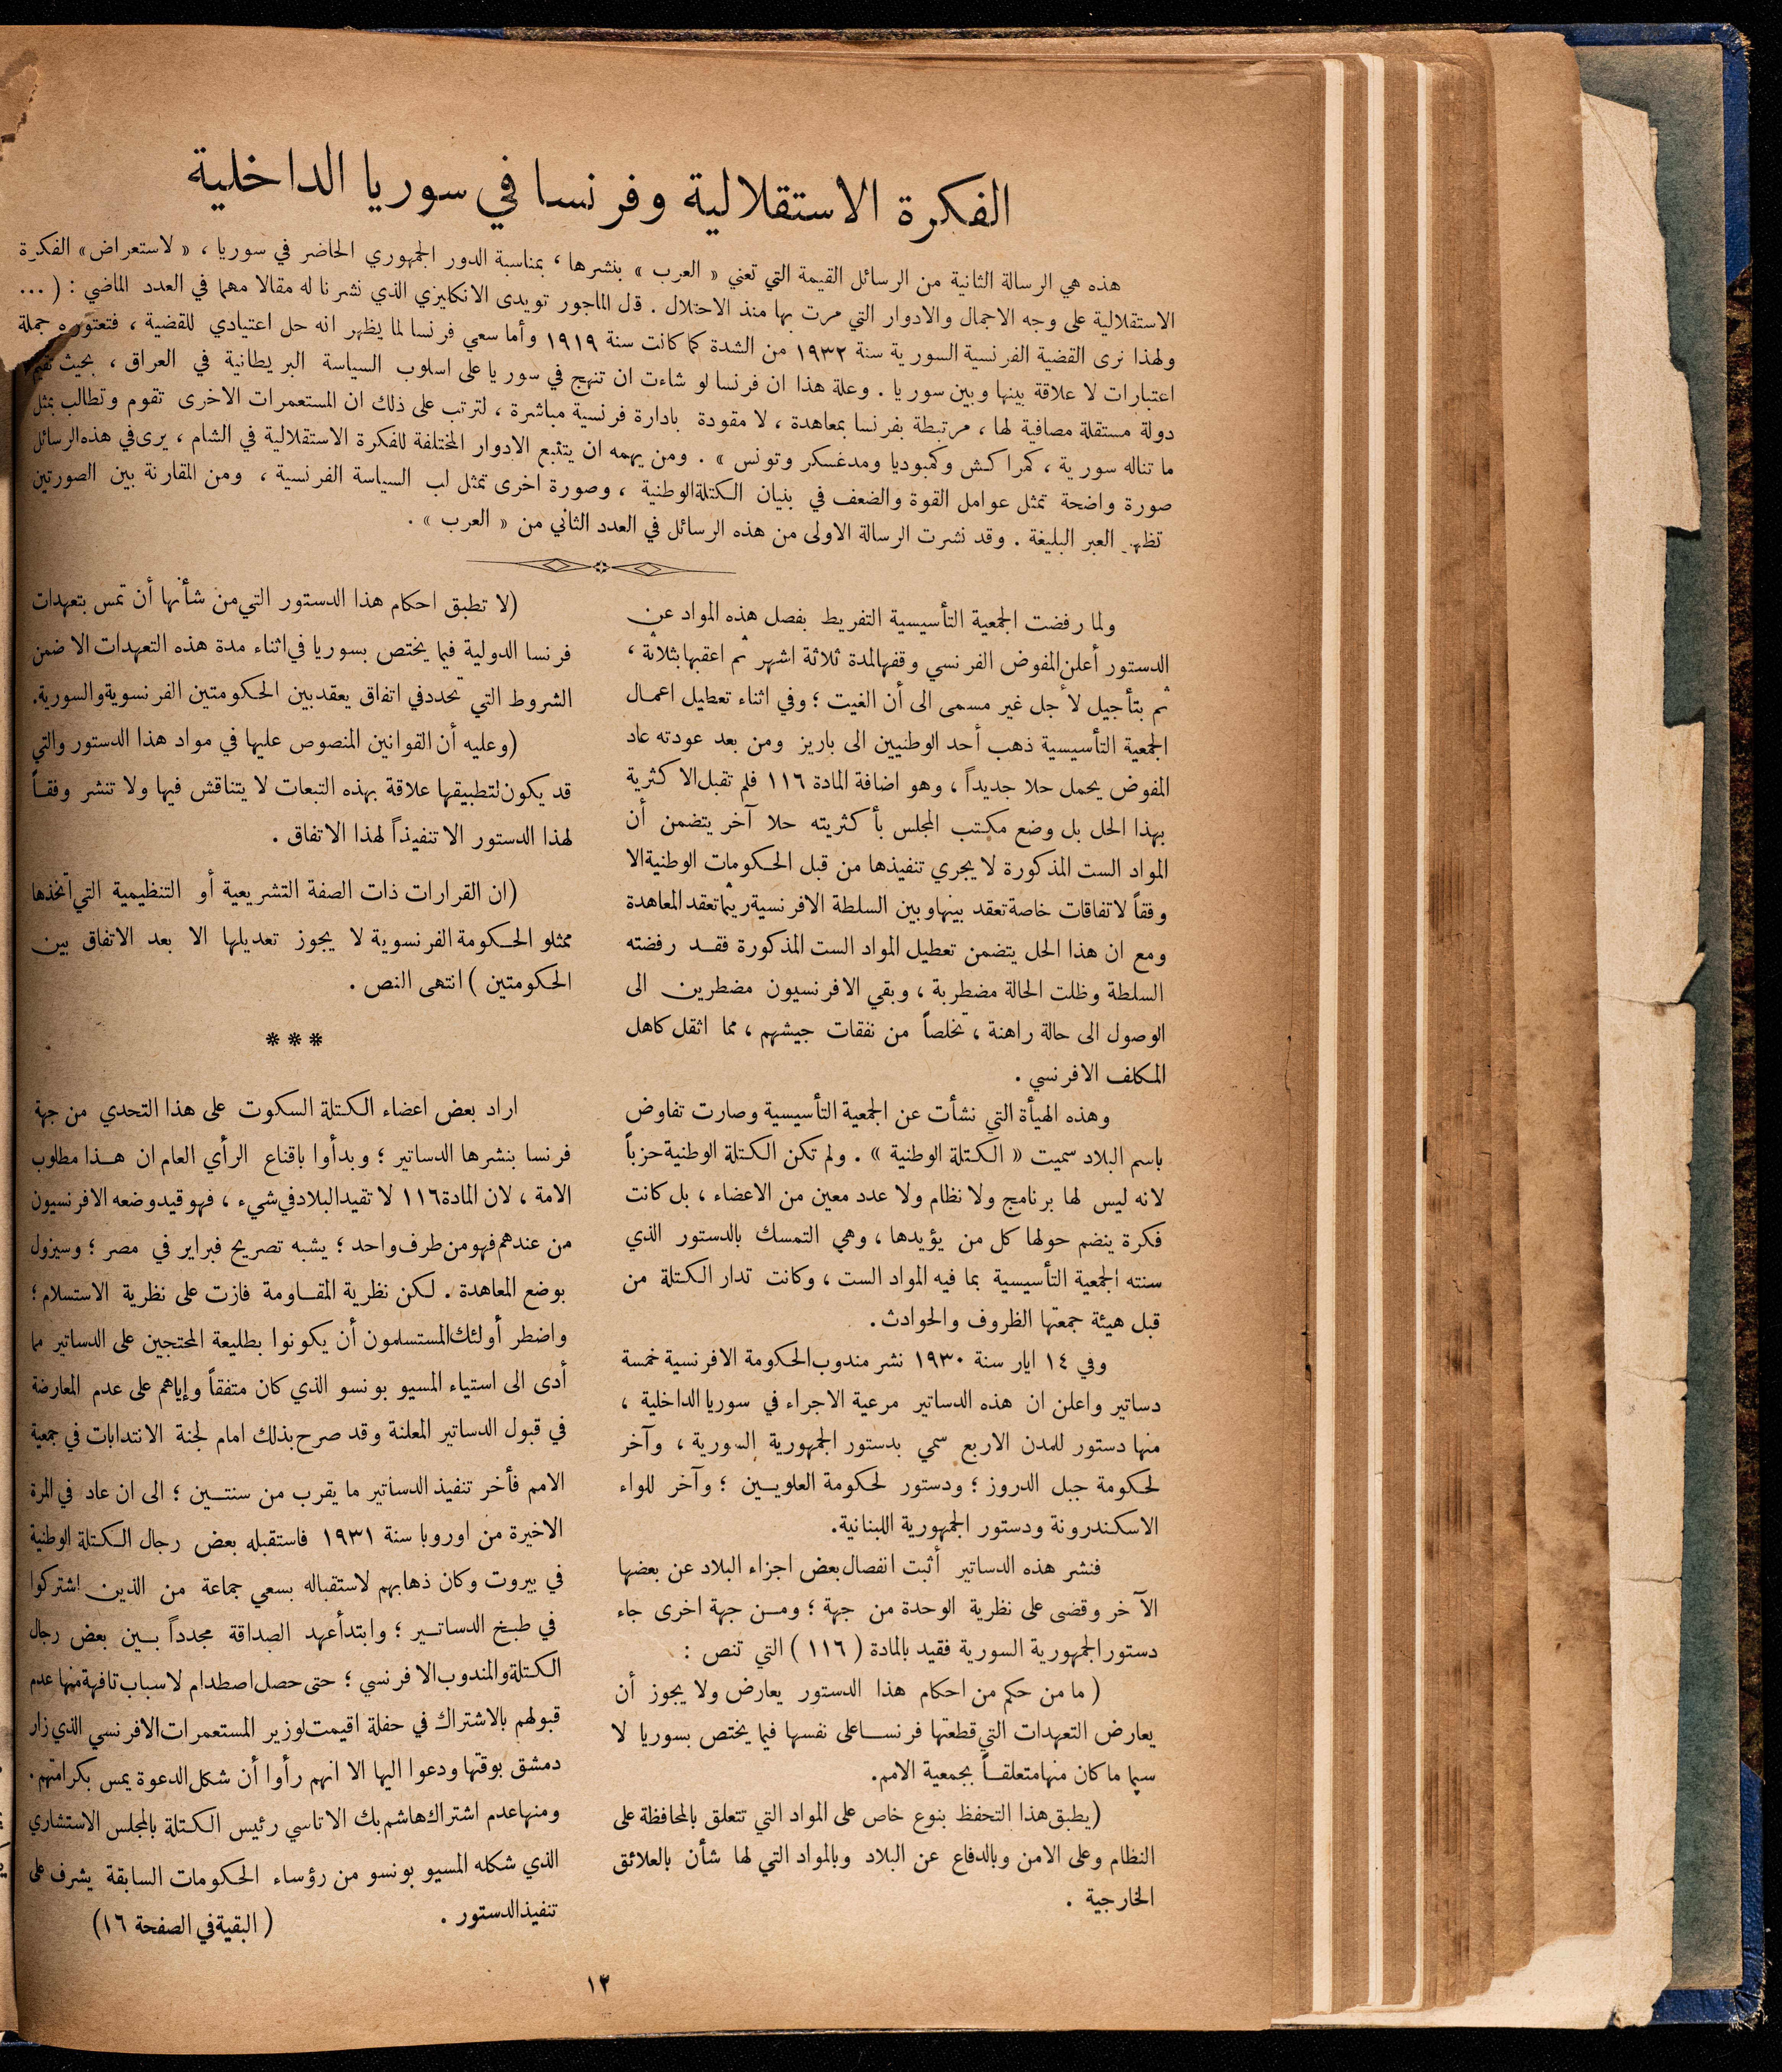 الفكرة الاستقلالية وفرنسا في سوريا الداخلية
هذه هي الرسالة الثانية من الرسائل القيمة التي تعني « العرب » بنشرها ، بمناسبة الدور الجمهوري الحاضر في سوريا ، « لاستعراض » الفكرة
الاستقلالية على وجه الاجمال والادوار التي مرت بها منذ الاحتلال . قل الماجور تويدى الانكليزي الذي نشرنا له مقالا مهما في العدد الماضي : ( ...
ولهذا نرى القضية الفرنسية السورية سنة ١٩٣٢ من الشدة كما كانت سنة ١٩١٩ وأما سعي فرنسا لما يظهر انه حل اعتيادي للقضية ، فتعتوره جملة
اعتبارات لا علاقة بينها وبين سوريا . وعلة هذا ان فرنسا لو شاءت ان تنهج في سوريا على اسلوب السياسة البريطانية في العراق ، بحيث تقيم
دولة مستقلة مصافية لها ، مرتبطة بفرنسا بمعاهدة ، لا مقودة بادارة فرنسية مباشرة ، لترتب على ذلك ان المستعمرات الاخرى تقوم وتطالب بمثل
ما تناله سورية ، كمراكش وكمبوديا ومدغسكر وتونس » . ومن يهمه ان يتتبع الادوار المختلفة للفكرة الاستقلالية في الشام ، يرى في هذه الرسائل
صورة واضحة تمثل عوامل القوة والضعف في بنيان الكتلة الوطنية ، وصورة اخرى تمثل لب السياسة الفرنسية ، ومن المقارنة بين الصورتين
تظهر العبر البليغة . وقد نشرت الرسالة الاولى من هذه الرسائل في العدد الثاني من « العرب » .
ولما رفضت الجمعية التأسيسية التفريط بفصل هذه المواد عن
الدستور أعلن المفوض الفرنسي وقفها لمدة ثلاثة اشهر ثم اعقبها بثلاثة ،
ثم بتأجيل لأجل غير مسمى الى أن الغيت ؛ وفي اثناء تعطيل اعمال
الجمعية التأسيسية ذهب أحد الوطنيين الى باريز ومن بعد عودته عاد
المفوض يحمل حلا جديداً ، وهو اضافة المادة ١١٦ فلم تقبل الاكثرية
بهذا الحل بل وضع مكتب المجلس بأكثريته حلا آخر يتضمن أن
المواد الست المذكورة لا يجري تنفيذها من قبل الحكومات الوطنية الا
وفقاً لاتفاقات خاصة تعقد بينها وبين السلطة الافرنسية ريثما تعقد المعاهدة
ومع ان هذا الحل يتضمن تعطيل المواد الست المذكورة فقد رفضته
السلطة وظلت الحالة مضطربة ، وبقي الافرنسيون مضطرين الى
الوصول الى حالة راهنة ، تخلصاً من نفقات جيشهم ، مما اثقل كاهل
المكلف الافرنسي .
وهذه الهيأة التي نشأت عن الجمعية التأسيسية وصارت تفاوض
باسم البلاد سميت « الكتلة الوطنية » . ولم تكن الكتلة الوطنية حزباً
لانه ليس لها برنامج ولا نظام ولا عدد معين من الاعضاء ، بل كانت
فكرة ينضم حولها كل من يؤيدها ، وهي التمسك بالدستور الذي
سنته الجمعية التأسيسية بما فيه المواد الست ، وكانت تدار الكتلة من
قبل هيئة جمعتها الظروف والحوادث .
وفي ١٤ ايار سنة ١٩٣٠ نشر مندوب الحكومة الافرنسية خمسة
دساتير واعلن ان هذه الدساتير مرعية الاجراء في سوريا الداخلية ،
منها دستور للمدن الاربع سمي بدستور الجمهورية السورية ، وآخر
لحكومة جبل الدروز ؛ ودستور لحكومة العلويين ؛ وآخر للواء
الاسكندرونة ودستور الجمهورية اللبنانية .
فنشر هذه الدساتير أثبت انفصال بعض اجزاء البلاد عن بعضها
الآخر وقضى على نظرية الوحدة من جهة ؛ ومن جهة اخرى جاء
دستور الجمهورية السورية فقيد بالمادة ( ١١٦ ) التي تنص :
( ما من حكم من احكام هذا الدستور يعارض ولا يجوز أن
يعارض التعهدات التي قطعتها فرنسا على نفسها فيما يختص بسوريا لا
سيما ما كان منها متعلقاً بجمعية الامم .
(يطبق هذا التحفظ بنوع خاص على المواد التي تتعلق بالمحافظة على
النظام وعلى الامن وبالدفاع عن البلاد وبالمواد التي لها شأن بالعلائق
الخارجية .
(لا تطبق احكام هذا الدستور التي من شأنها أن تمس بتعهدات
فرنسا الدولية فيما يختص بسوريا في اثناء مدة هذه التعهدات الا ضمن
الشروط التي تحدد في اتفاق يعقد بين الحكومتين الفرنسوية والسورية .
(وعليه أن القوانين المنصوص عليها في مواد هذا الدستور والتي
قد يكون لتطبيقها علاقة بهذه التبعات لا يتناقش فيها ولا تنشر وفقاً
لهذا الدستور الا تنفيذاً لهذا الاتفاق .
(ان القرارات ذات الصفة التشريعية أو التنظيمية التي اتخذها
ممثلو الحكومة الفرنسوية لا يجوز تعديلها الا بعد الاتفاق بين
الحكومتين ) انتهى النص .
***
اراد بعض اعضاء الكتلة السكوت على هذا التحدي من جهة
فرنسا بنشرها الدساتير ؛ وبدأوا باقناع الرأي العام ان هذا مطلوب
الامة ، لان المادة ١١٦ لا تقيد البلاد في شيء ، فهو قيد وضعه الافرنسيون
من عندهم فهو من طرف واحد ؛ يشبه تصريح فبراير في مصر ؛ وسيزول
بوضع المعاهدة . لكن نظرية المقاومة فازت على نظرية الاستسلام ؛
واضطر أولئك المستسلمون أن يكونوا بطليعة المحتجين على الدساتير مما
أدى الى استياء المسيو بونسو الذي كان متفقاً وإياهم على عدم المعارضة
في قبول الدساتير المعلنة وقد صرح بذلك امام لجنة الانتدابات في جمعية
الامم فأخر تنفيذ الدساتير ما يقرب من سنتين ؛ الى ان عاد في المرة
الاخيرة من اوروبا سنة ١٩٣١ فاستقبله بعض رجال الكتلة الوطنية
في بيروت وكان ذهابهم لاستقباله بسعي جماعة من الذين اشتركوا
في طبخ الدساتير ؛ وابتدأ عهد الصداقة مجدداً بين بعض رجال
الكتلة والمندوب الافرنسي ؛ حتى حصل اصطدام لاسباب تافهة منها عدم
قبولهم بالاشتراك في حفلة اقيمت لوزير المستعمرات الافرنسي الذي زار
دمشق بوقتها ودعوا اليها الا انهم رأوا أن شكل الدعوة يمس بكرامتهم .
ومنها عدم اشتراك هاشم بك الاتاسي رئيس الكتلة بالمجلس الاستشاري
الذي شكله المسيو بونسو من رؤساء الحكومات السابقة يشرف على
تنفيذ الدستور . ( البقية في الصفحة ١٦)
١٢